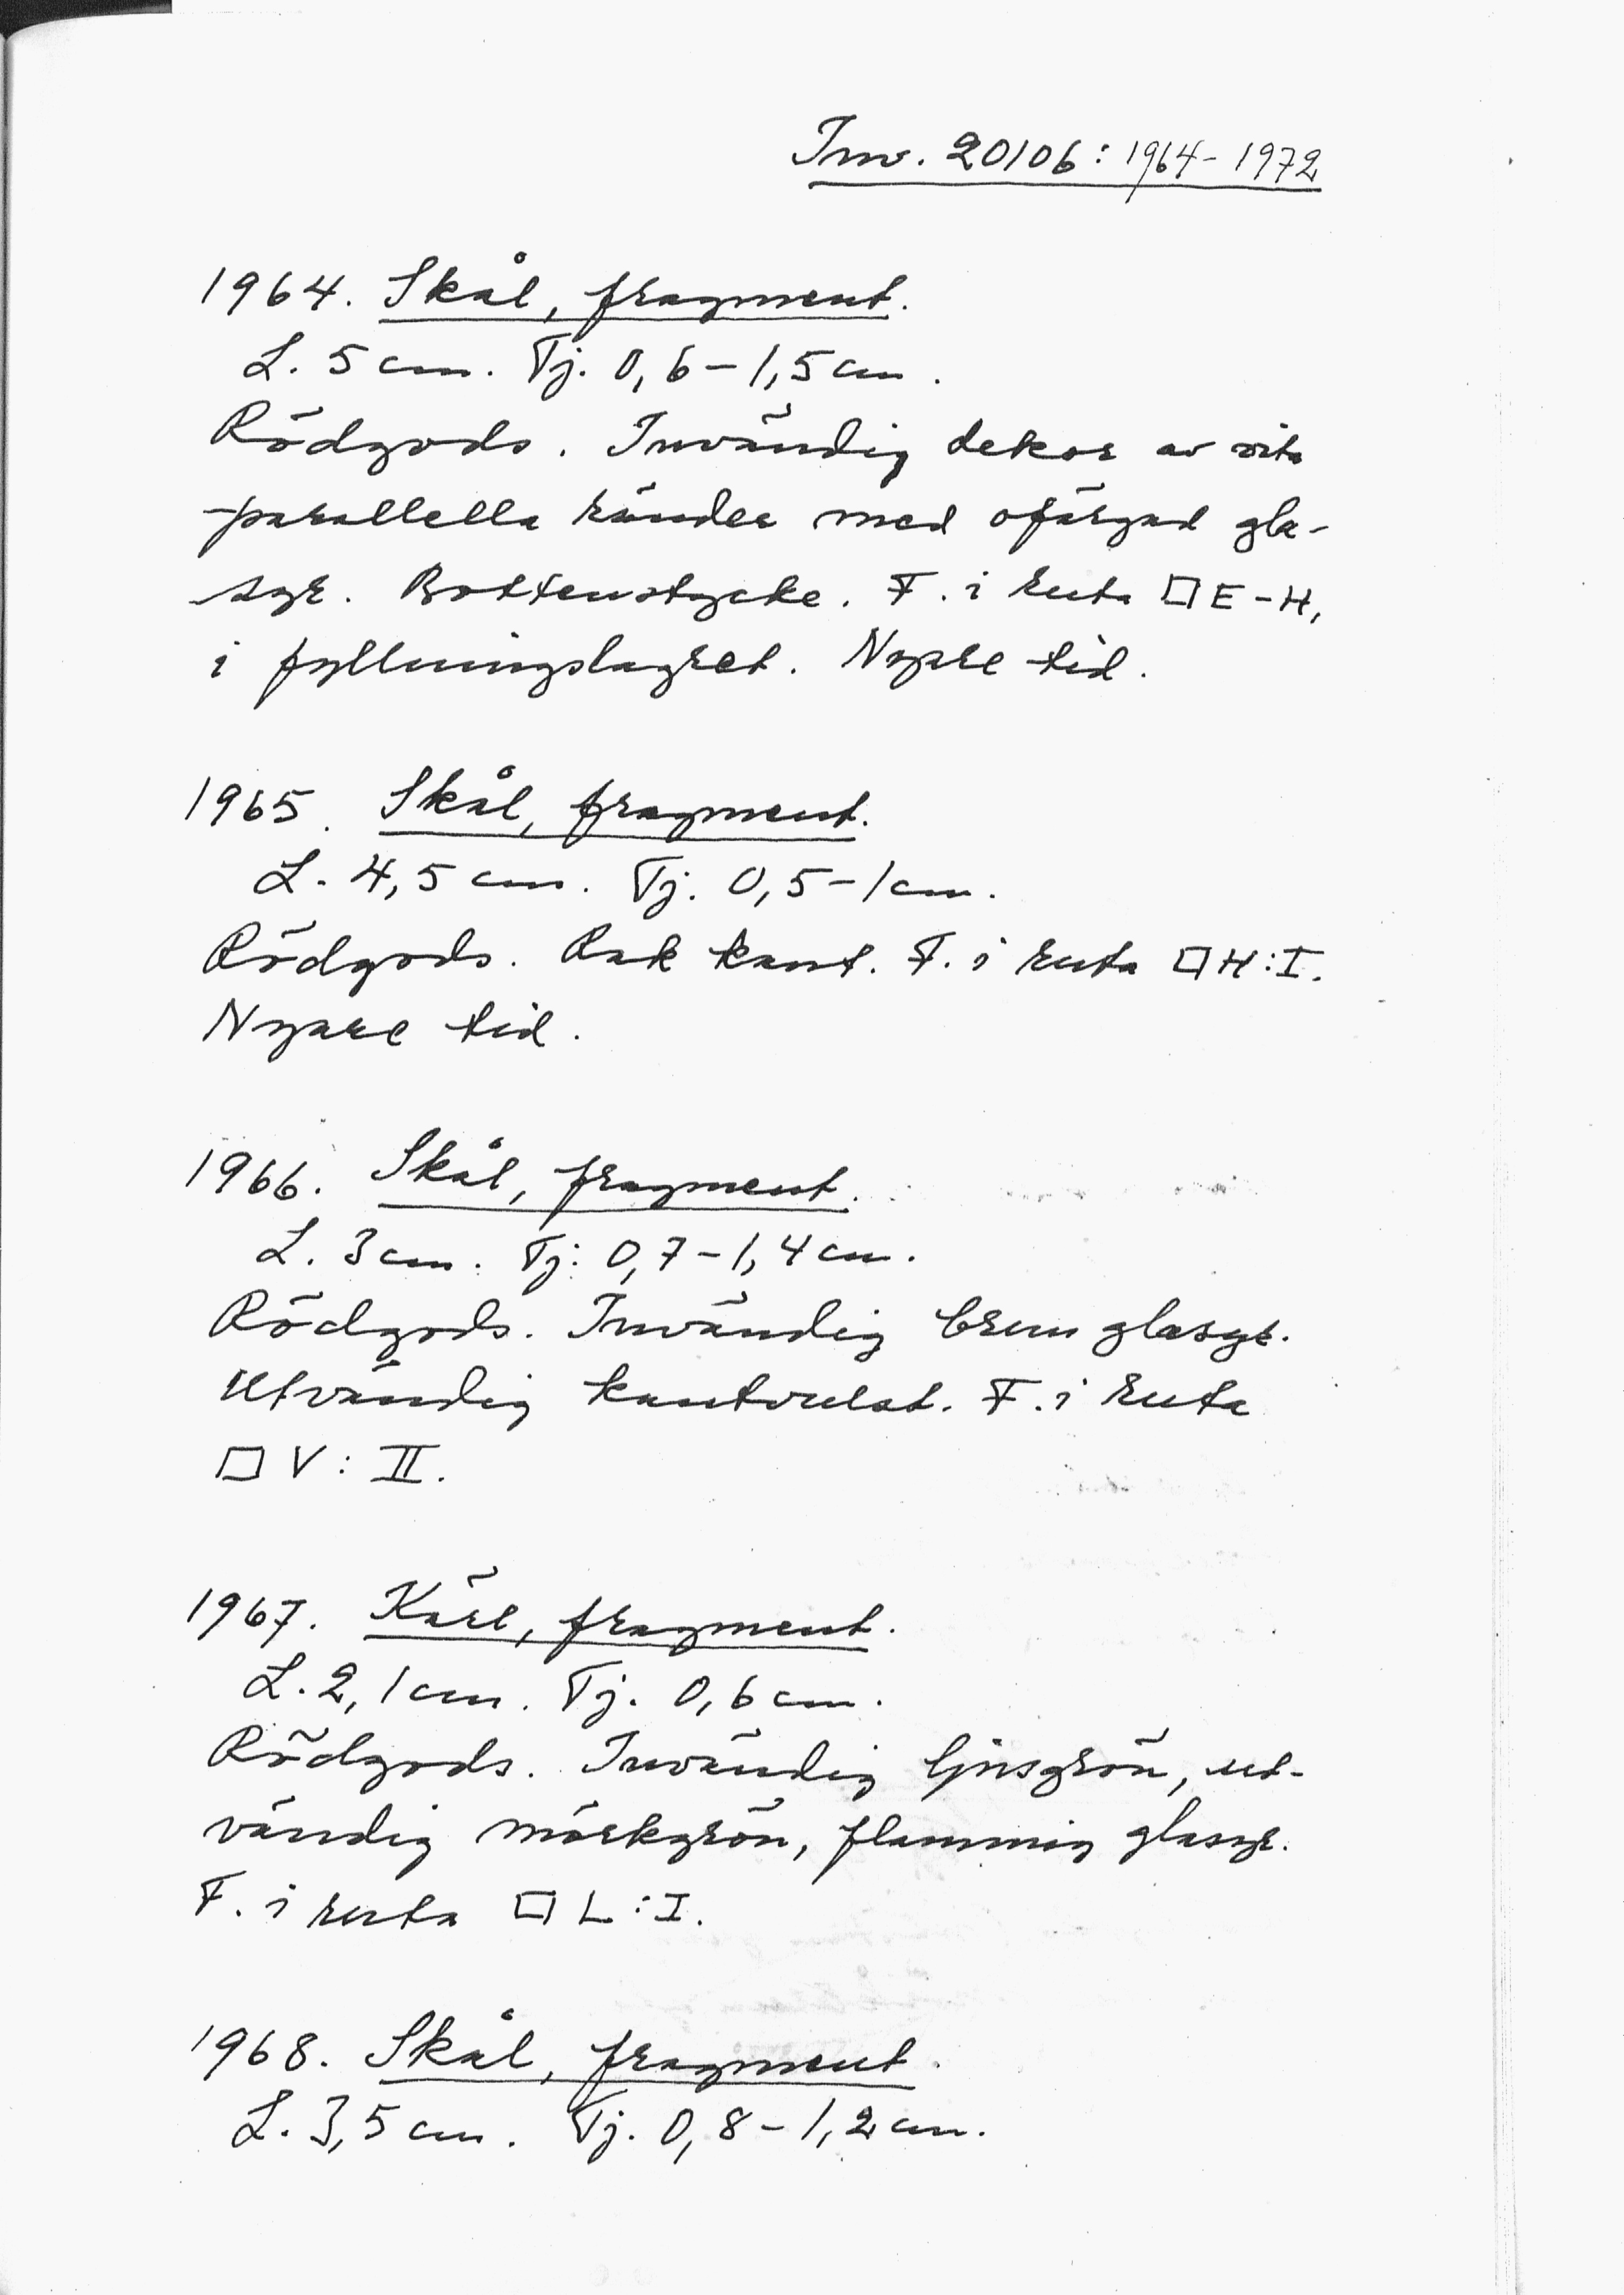 Inv. 20106: 1964-1972
1964. Skål, fragment.
L. 5 cm. Tj. 0,6-1,5 cm.
Rödgods. Invändig dekor av vita
parallella ränder med ofärgad gla-
syr. Bottenstycke. F. i ruta □ E-H,
i fyllningslagret. Nyare tid.
1965. Skål, fragment.
L. 4,5 cm. Tj. 0,5-1 cm.
Rödgods. Rak kant. F. i ruta □ H:I.
Nyare tid.
1966. Skål, fragment.
L. 3 cm. Tj: 0,7-1,4 cm.
Rödgods. Invändig brun glasyr.
Utvändig kantvulst. F. i ruta
□ V: II.
1967. Kärl, fragment.
L. 2,1 cm. Tj. 0,6 cm.
Rödgods. Invändig ljusgrön, ut-
vändig mörkgrön, flammig glasyr.
F. i ruta □ L:I.
1968. Skål, fragment.
L. 3,5 cm. Tj. 0,8-1,2 cm.